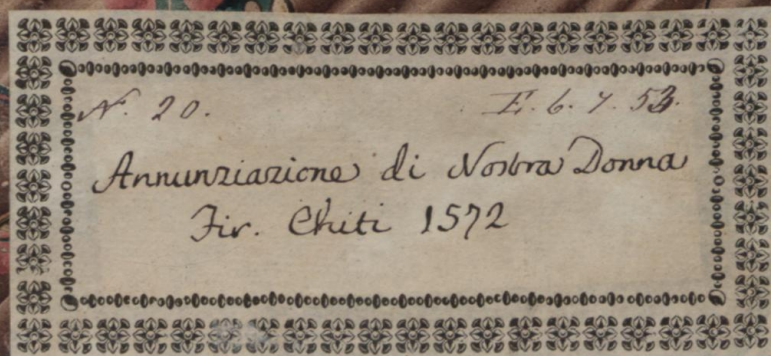 N. 20. E. 6. 7. 53.
Annunziazione di Nostra Donna
Fir. Chiti 1572